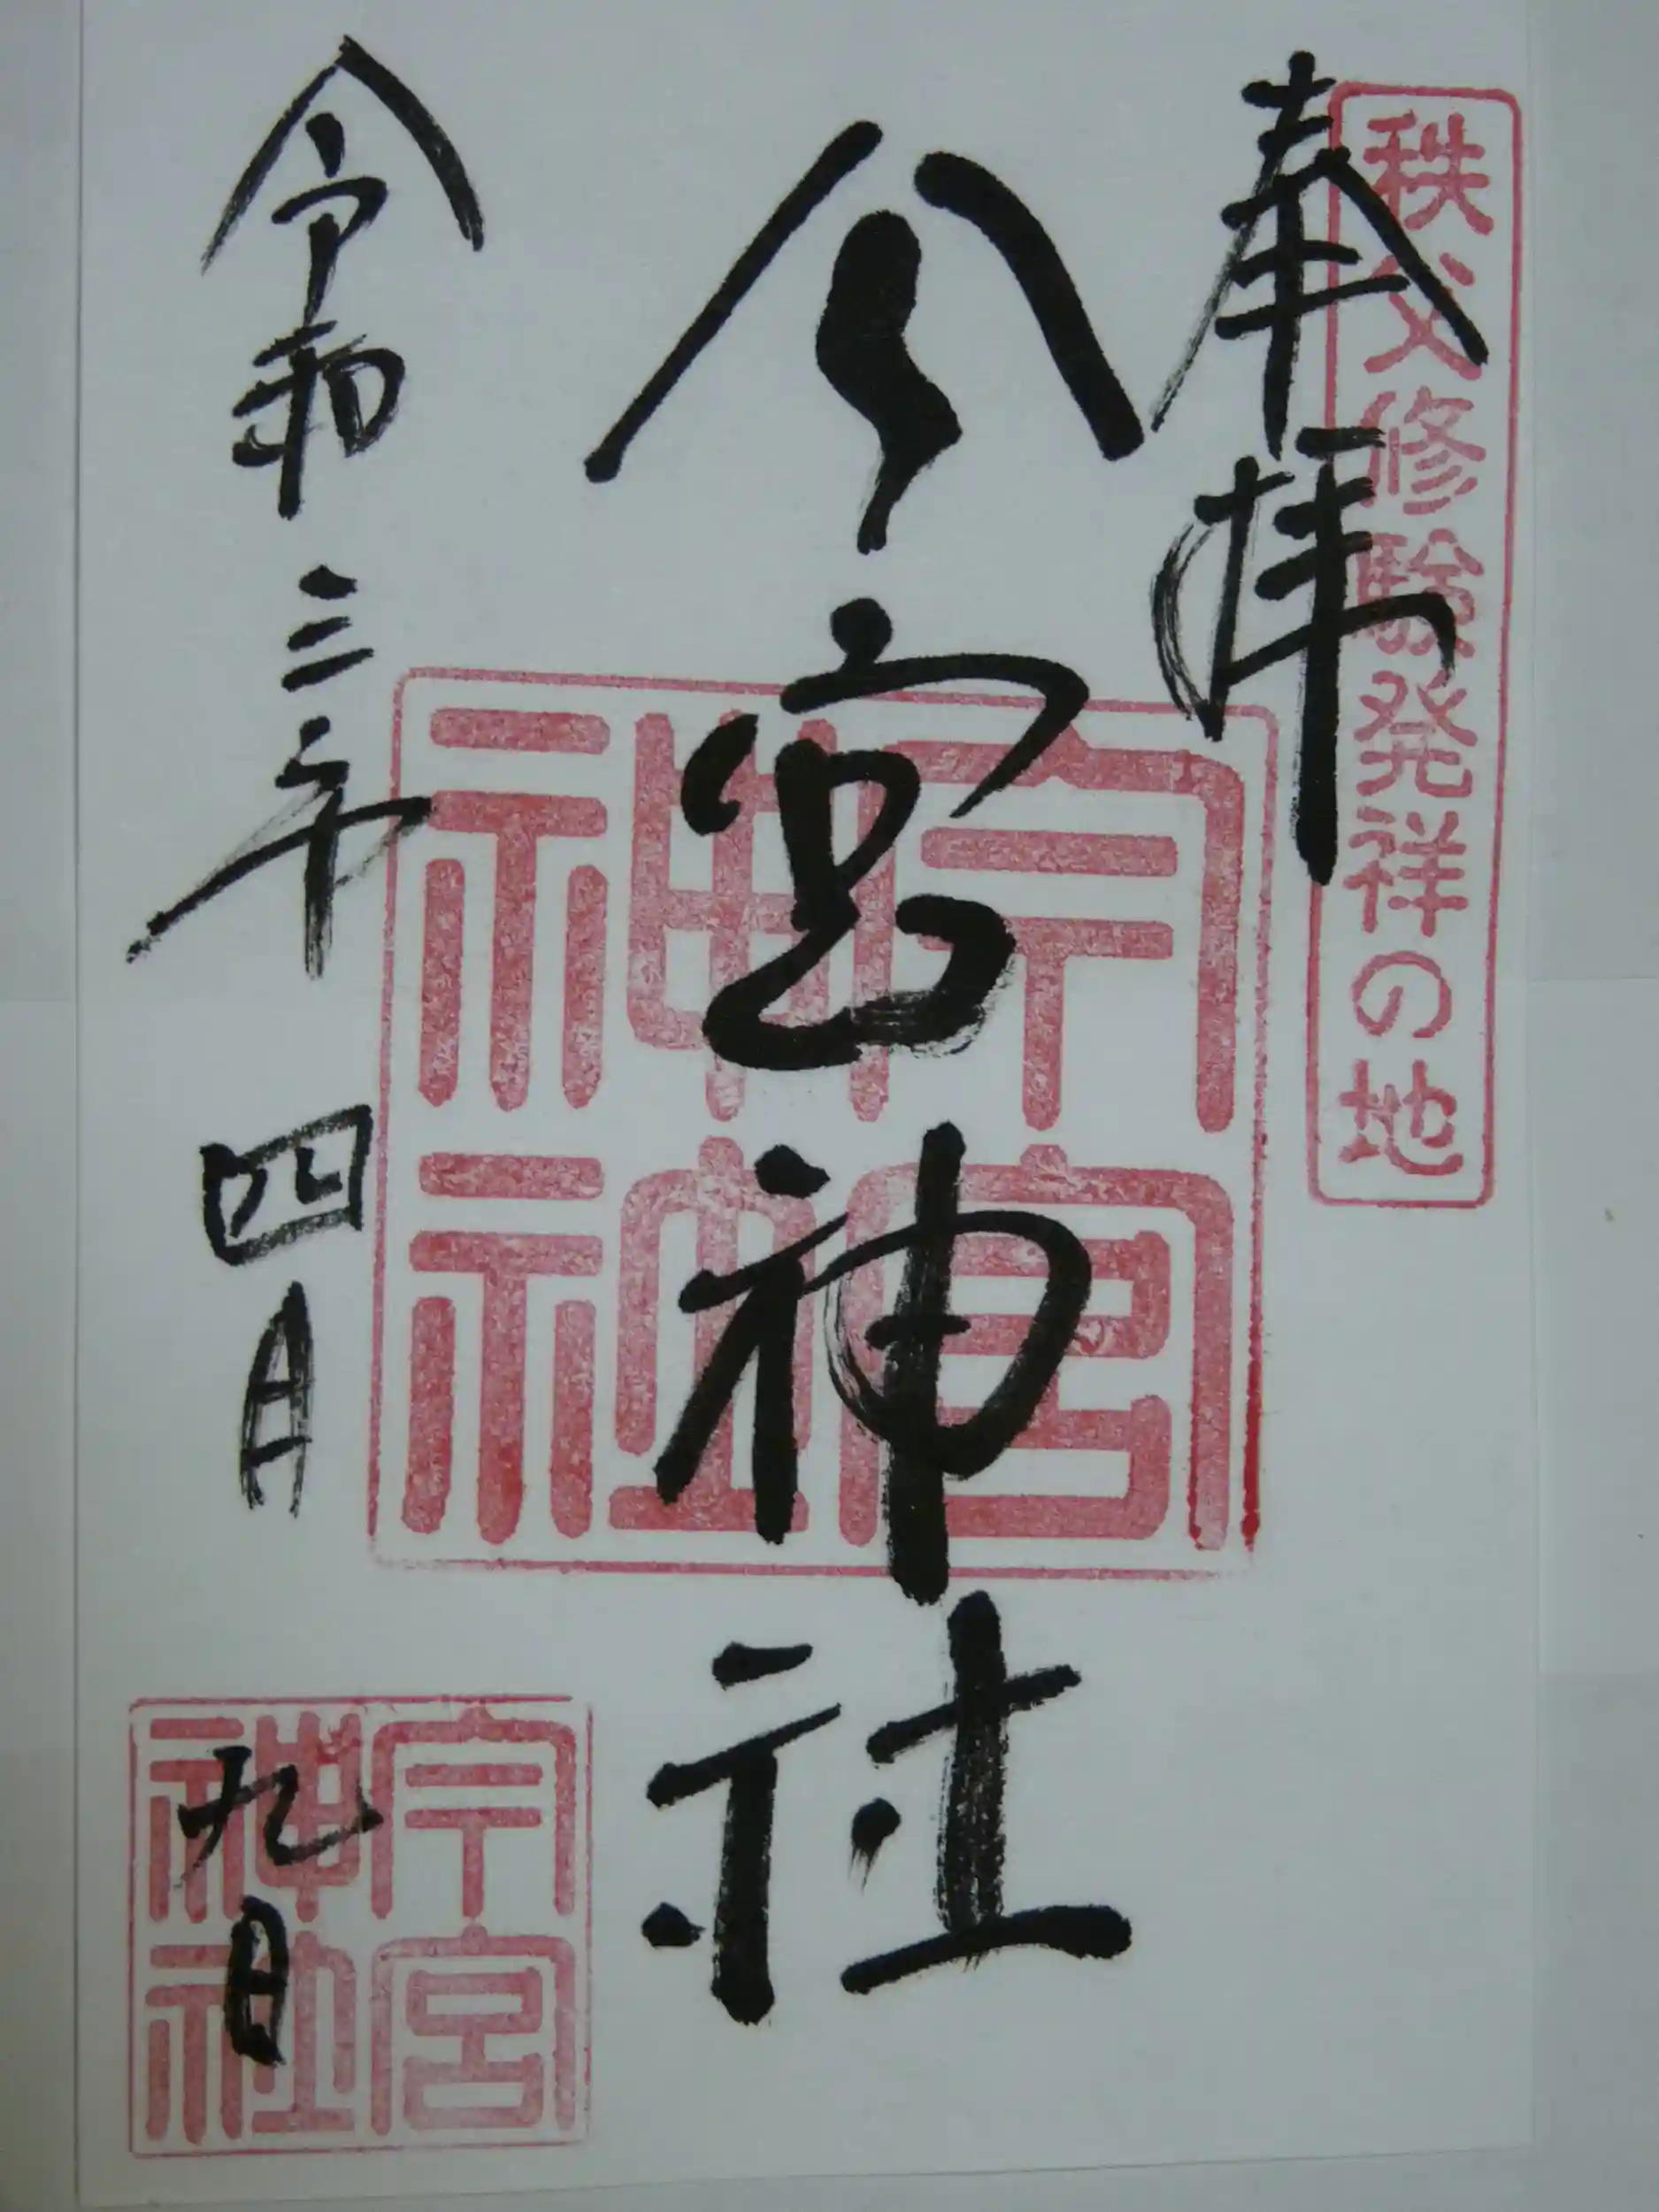 秩父修験発祥の地
奉拝
今宮神社
今宮
神社
令和三年四月九日
今宮
神社